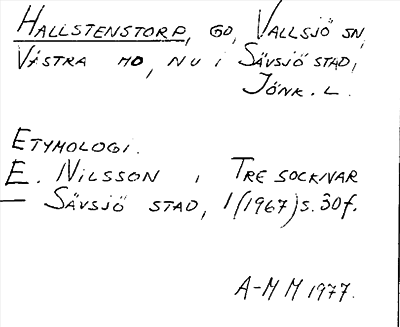 HALLSTENSTORP, GD, VALLSJÖ SN,
VÄSTRA HD, NU I SÄVSJÖ STAD,
JÖNK. L.
ETYMOLOGI.
E. NILSSON I TRE SOCKNAR
— SÄVSJÖ STAD, 1 (1967) s. 30 f.
A-M M 1977.